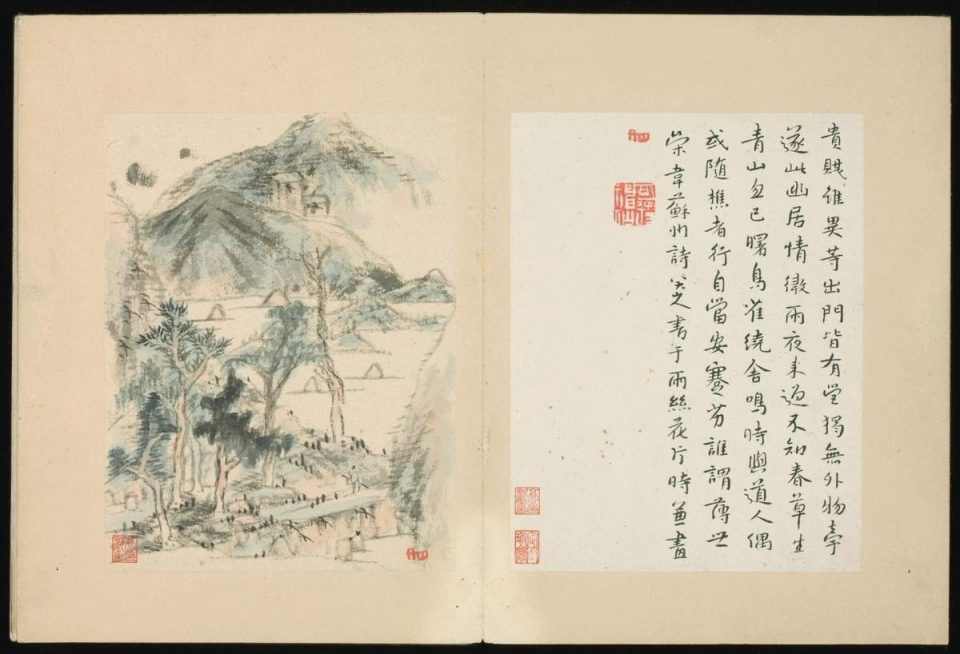 貴賤雖異等出門皆有營獨無外物牽
遂此幽居情微雨夜来過不知春草生
青山忽已曙鳥雀繞舍鳴時與道人偶
或隨樵者行自當安蹇劣誰謂薄世
榮韋蘇州詩書于雨絲花片時兼畫